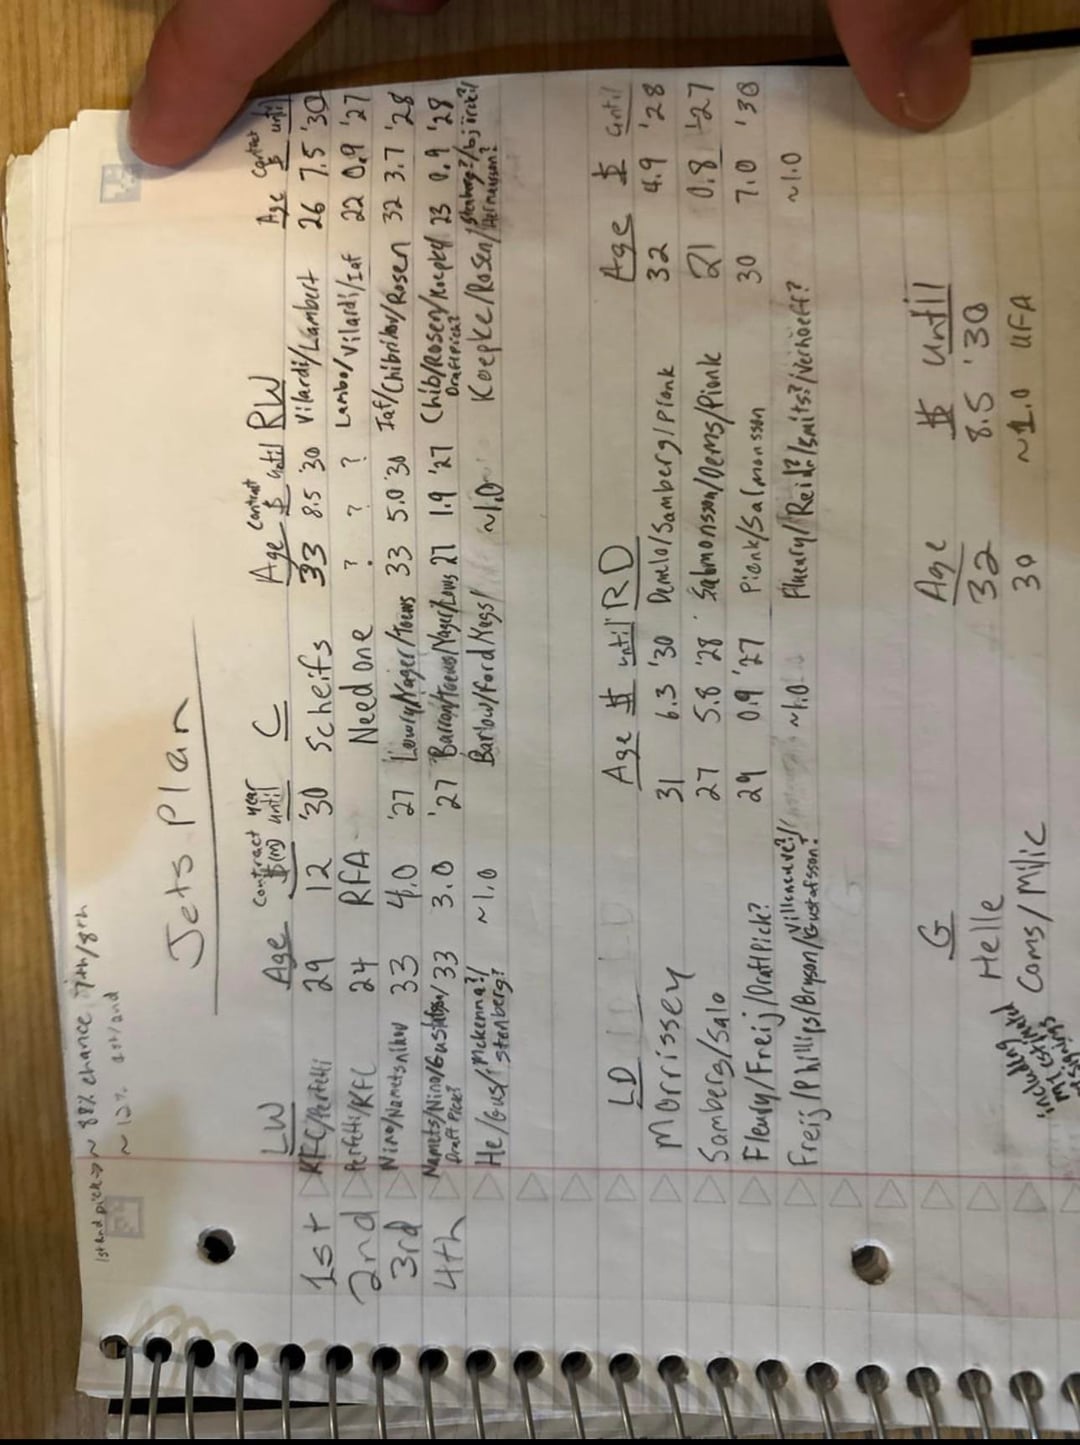 1st rnd pick → ~ 88% chance 7th/8th
~ 12% 1st/2nd
Jets Plan
LW Age Contract $(M) year until C Age Contract $ until RW Age Contract $ until
1st RFC/Perfetti 29 12 '30 Scheifs 33 8.5 '30 Vilardi/Lambert 26 7.5 '30
2nd Perfetti/KFC 24 RFA Need one ? ? ? Lambo/Vilardi/Iaf 22 0.9 '27
3rd Nino/Namestnikov 33 4.0 '27 Lowry/Yager/Toews 33 5.0 '30 Iaf/Chibrikov/Rosen 32 3.7 '28
4th Namets/Nino/Gustafsson/Draft Pick? 33 3.0 '27 Barron/Toews/Yager/Lows 27 1.9 '27 Chib/Rosen/Koepke/Draft Pick? 23 0.9 '28
He/Gus/Mckenna?/Stenberg? ~1.0 Barlow/Ford/Yags/ ~1.0 Koepke/Rosen/Stenberg?/Bjorck?/
LD Age $ until RD Age $ until
Morrissey 31 6.3 '30 Demelo/Samberg/Pionk 32 4.9 '28
Samberg/Salo 27 5.8 '28 Salmonsson/Dems/Pionk 21 0.8 '27
Fleury/Freij/Draft Pick? 29 0.9 '27 Pionk/Salmonsson 30 7.0 '30
Freij/Phillips/Bryson/Villeneuve?/Gustafsson? ~1.0 Flueury/Reid?/Smits?/Verhoeff? ~1.0
G Age $ Until
Helle 32 8.5 '30
Coms/Milic 30 ~1.0 UFA
including estimated